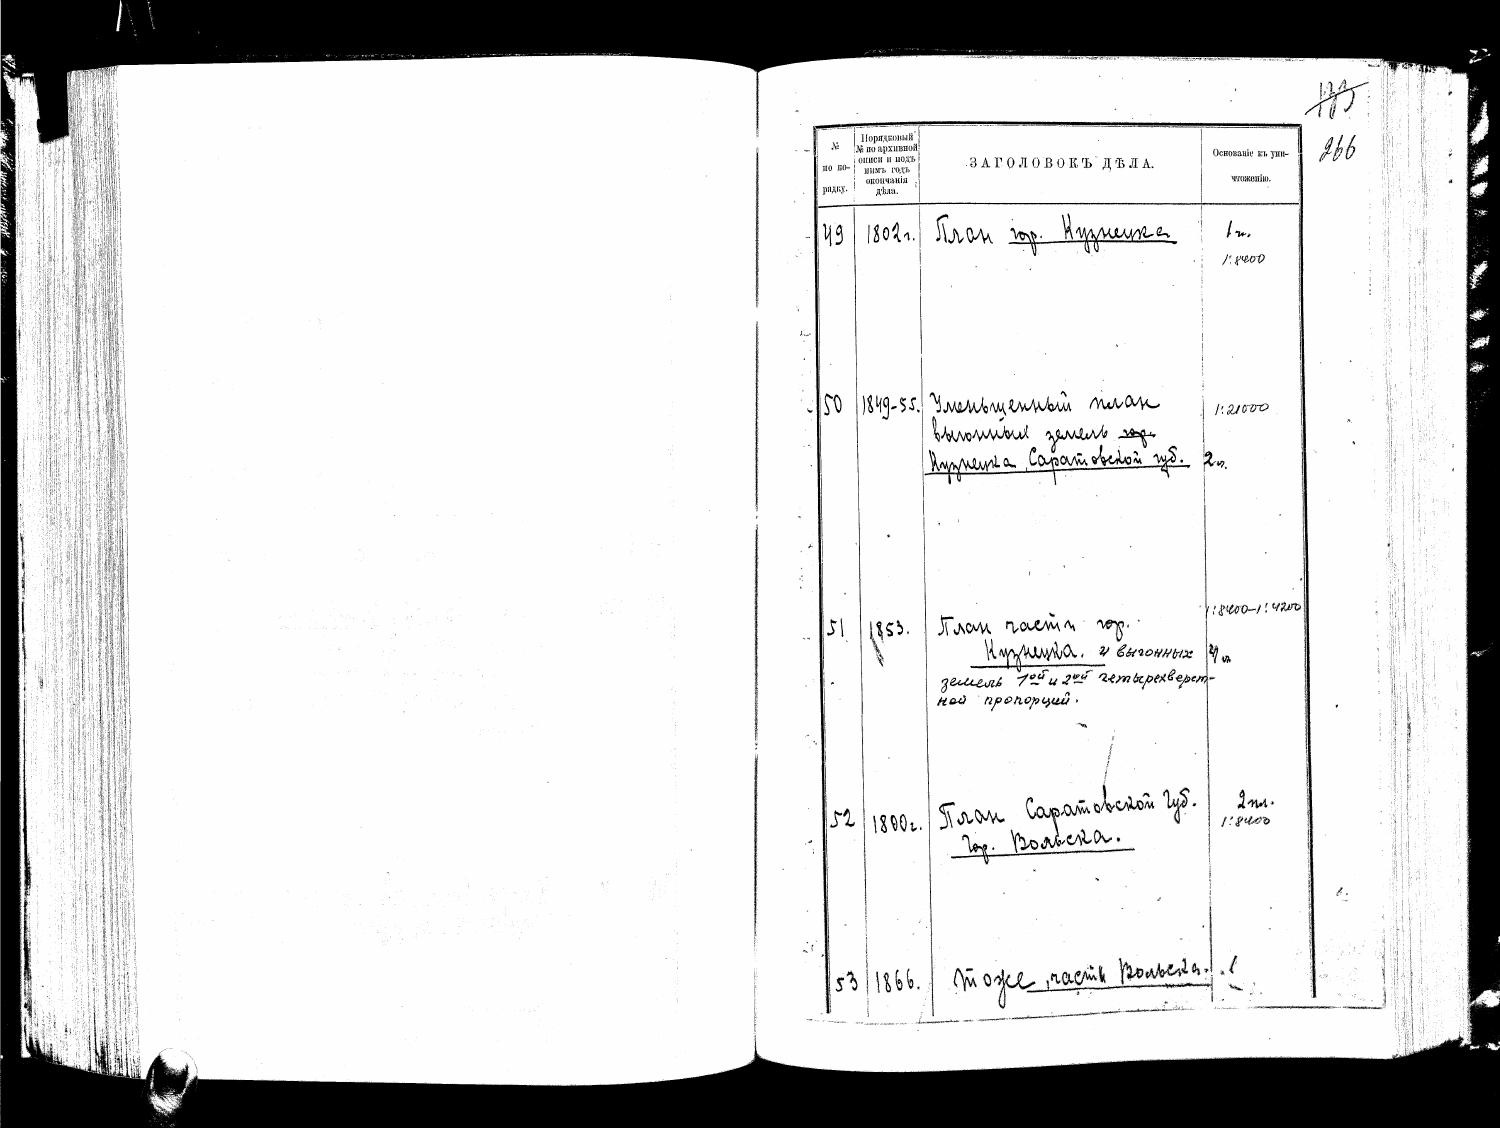 183
266
№
по по-
рядку.
Порядковый
№ по архивной
описи и подъ
нимъ годъ
окончанія
дѣла.
ЗАГОЛОВОКЪ ДѢЛА.
Основаніе къ уни-
чтоженію.
49 1802 г. План гор. Кузнецка 1 л.
1:8400
50 1849-55. Уменьшенный план 1:21000
выгонных земель гор.
Кузнецка Саратовской губ. 2 л.
1:8400-1:4200
51 1853. План части гор.
Кузнецка. и выгонных
земель 1ой и 2ой четырехверст-
ной пропорций.
52 1800 г. План Саратовской Губ. 2 пл.
гор. Вольска. 1:8400
53 1866. тоже, части Вольска. 1